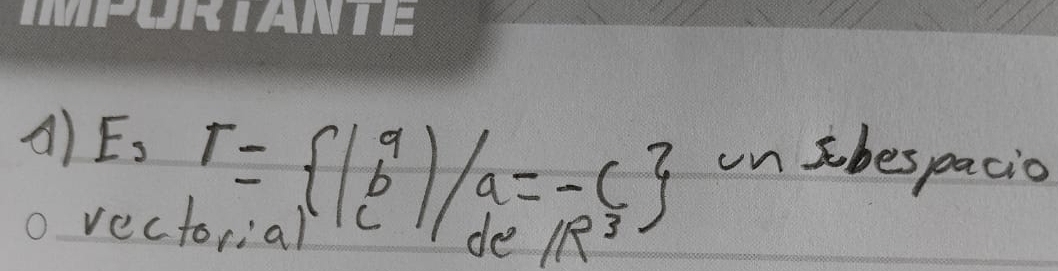 IMPORTANTE
1) Es T = {(a b c) / a = -c} un subespacio
vectorial de ℝ³